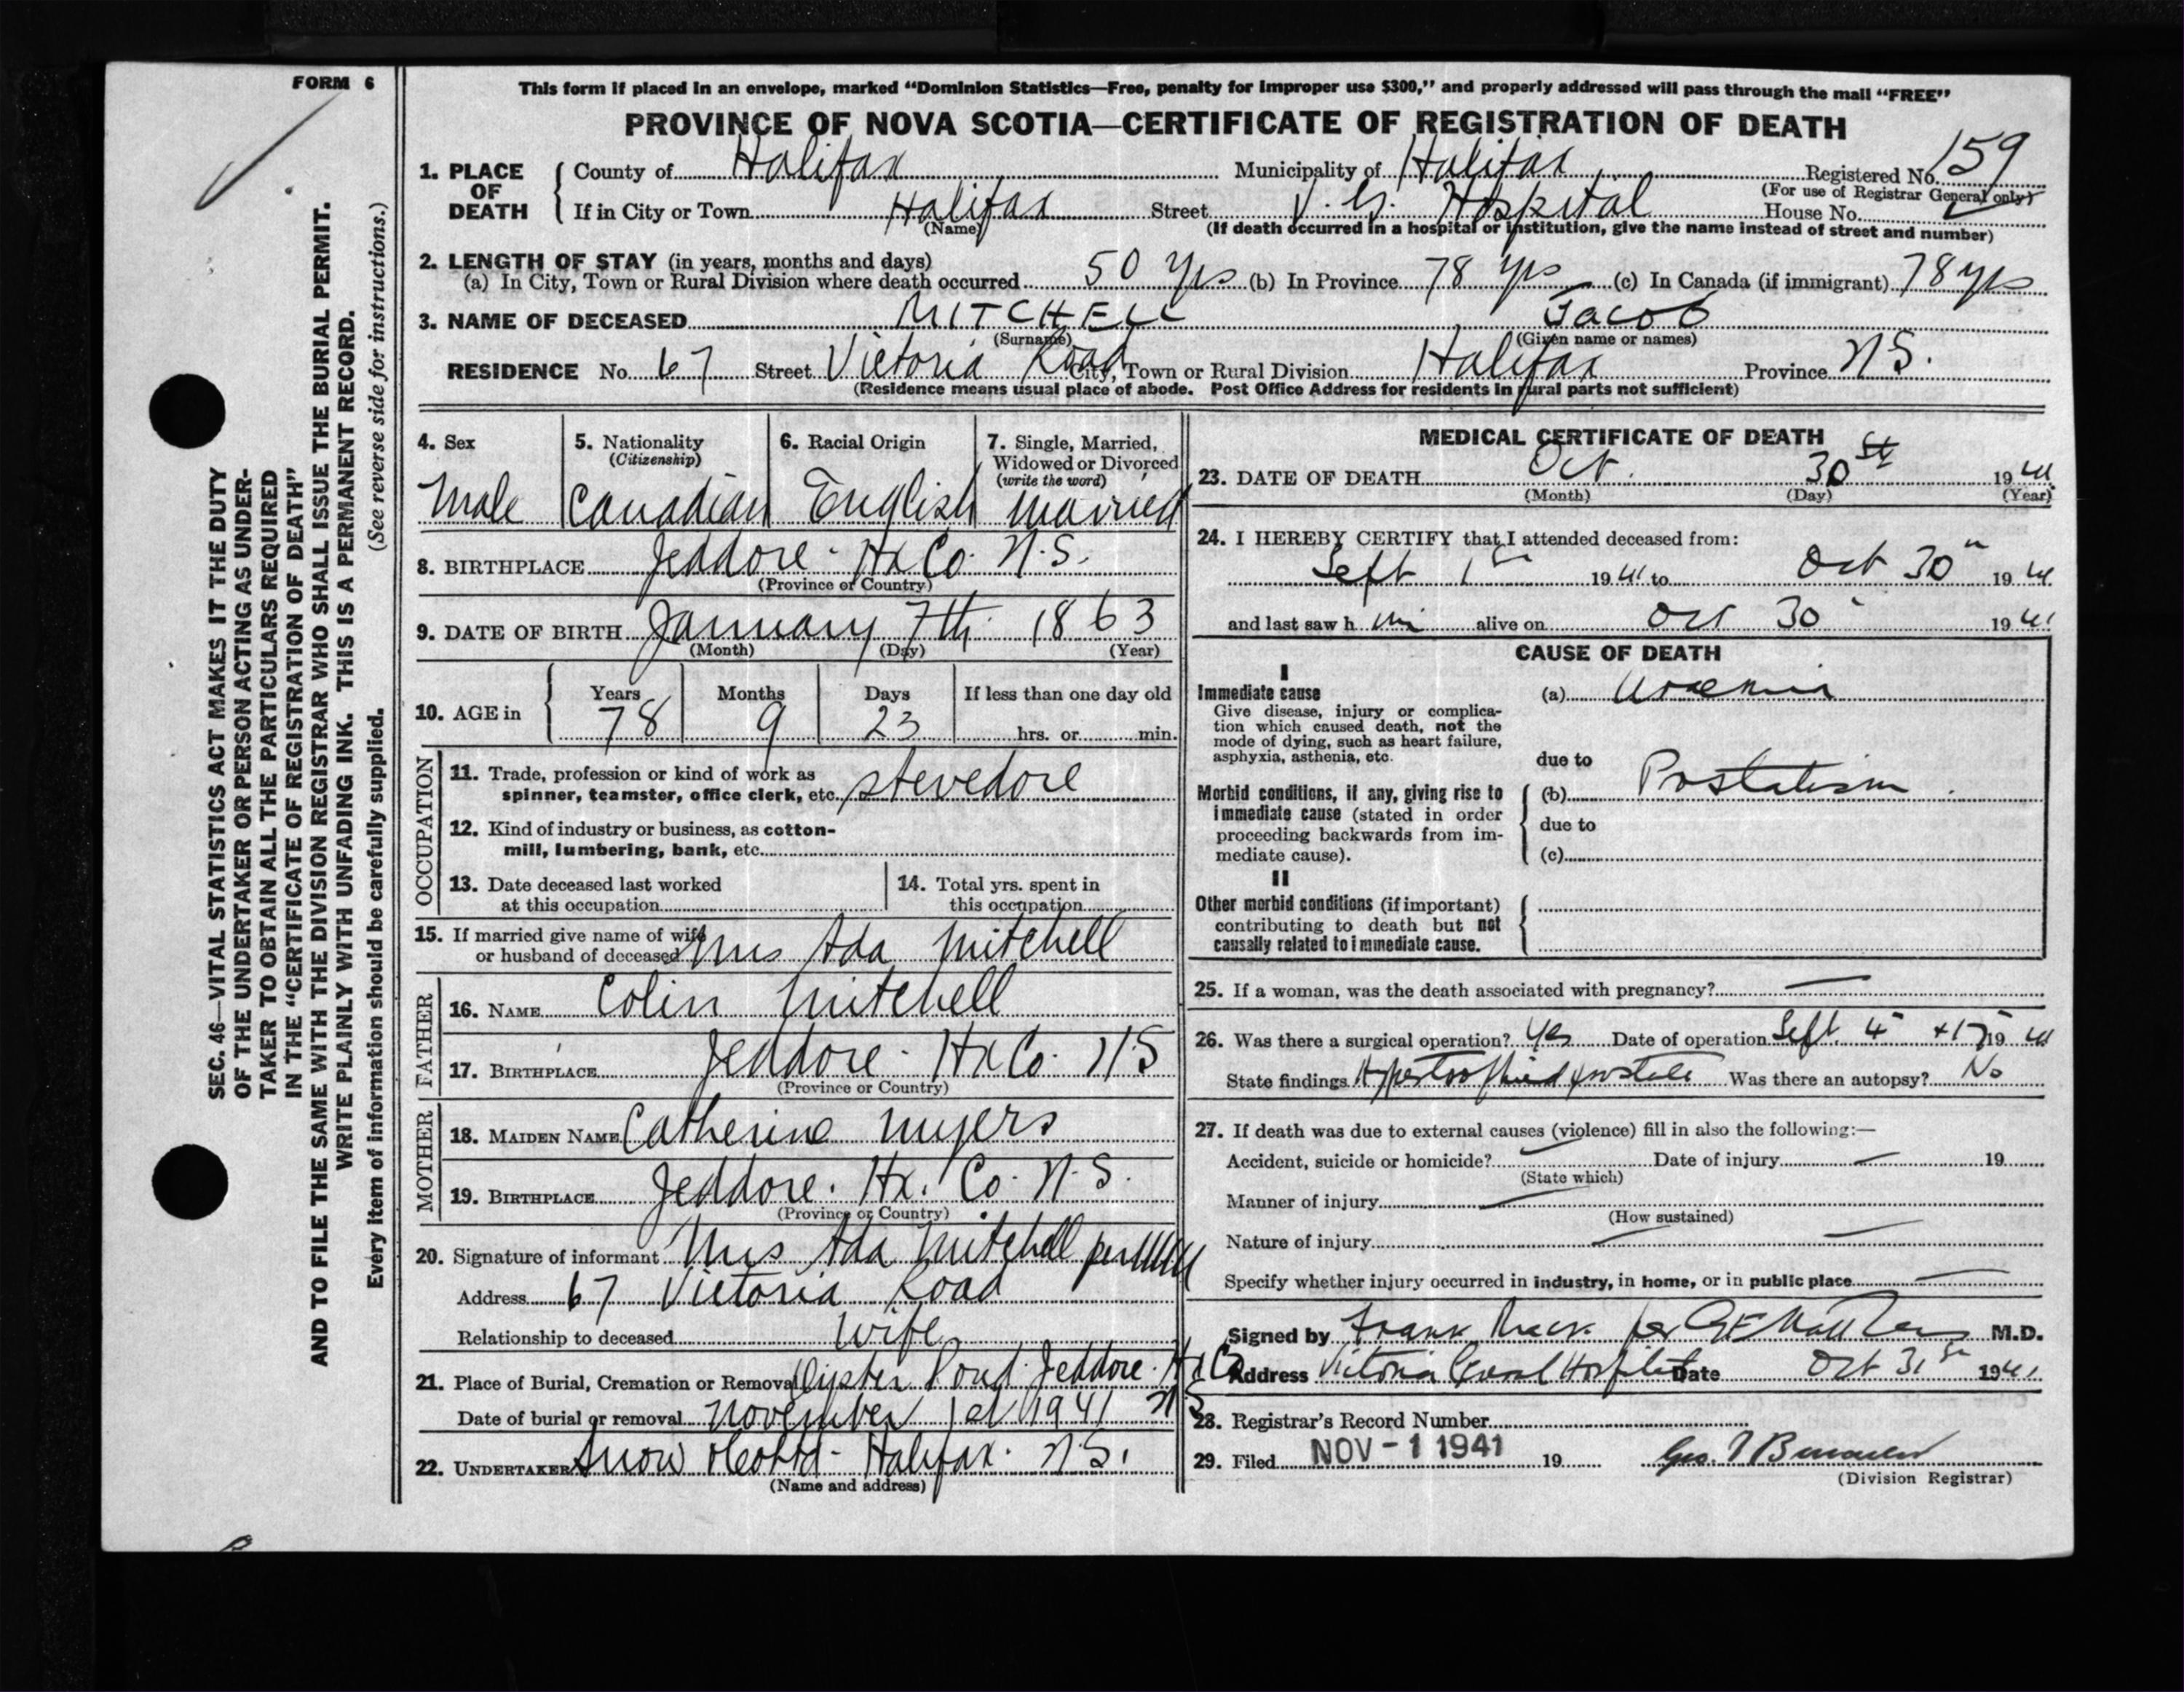 FORM 6
This form if placed in an envelope, marked "Dominion Statistics—Free, penalty for improper use $300," and properly addressed will pass through the mail "FREE"
PROVINCE OF NOVA SCOTIA—CERTIFICATE OF REGISTRATION OF DEATH
1. PLACE OF DEATH
County of Halifax Municipality of Halifax Registered No. 159
(For use of Registrar General only)
If in City or Town Halifax Street V. G. Hospital House No.
(Name) (If death occurred in a hospital or institution, give the name instead of street and number)
2. LENGTH OF STAY (in years, months and days)
(a) In City, Town or Rural Division where death occurred 50 yrs (b) In Province 78 yrs (c) In Canada (if immigrant) 78 yrs
3. NAME OF DECEASED MITCHELL Jacob
(Surname) (Given name or names)
RESIDENCE No. 67 Street Victoria Road City, Town or Rural Division Halifax Province N.S.
(Residence means usual place of abode. Post Office Address for residents in rural parts not sufficient)
4. Sex
Male
5. Nationality
(Citizenship)
Canadian
6. Racial Origin
English
7. Single, Married, Widowed or Divorced
(write the word)
Married
8. BIRTHPLACE Jeddore. Hx Co. N.S.
(Province or Country)
9. DATE OF BIRTH January 7th 1863
(Month) (Day) (Year)
10. AGE in
Years Months Days If less than one day old
78 9 23 hrs. or min.
OCCUPATION
11. Trade, profession or kind of work as
spinner, teamster, office clerk, etc. stevedore
12. Kind of industry or business, as cotton-
mill, lumbering, bank, etc.
13. Date deceased last worked
at this occupation
14. Total yrs. spent in
this occupation
15. If married give name of wife
or husband of deceased Mrs Ada Mitchell
FATHER
16. NAME Colin Mitchell
17. BIRTHPLACE Jeddore. Hx Co. N.S
(Province or Country)
MOTHER
18. MAIDEN NAME Catherine Myers
19. BIRTHPLACE Jeddore. Hx. Co. N.S.
(Province or Country)
20. Signature of informant Mrs Ada Mitchell per
Address 67 Victoria Road
Relationship to deceased Wife
21. Place of Burial, Cremation or Removal Oyster Pond Jeddore. Hx Co
Date of burial or removal November 1st 1941 N.S
22. UNDERTAKER Snow & Co Ltd - Halifax. N.S.
(Name and address)
MEDICAL CERTIFICATE OF DEATH
23. DATE OF DEATH Oct. 30 1941
(Month) (Day) (Year)
24. I HEREBY CERTIFY that I attended deceased from:
Sept 1st 1941 to Oct 30 1941
and last saw h im alive on Oct 30 1941
CAUSE OF DEATH
I
Immediate cause
Give disease, injury or complica-
tion which caused death, not the
mode of dying, such as heart failure,
asphyxia, asthenia, etc.
(a) Uraemia
due to
Morbid conditions, if any, giving rise to
immediate cause (stated in order
proceeding backwards from im-
mediate cause).
(b) Prostatism
due to
(c)
II
Other morbid conditions (if important)
contributing to death but not
causally related to immediate cause.
25. If a woman, was the death associated with pregnancy? —
26. Was there a surgical operation? Yes Date of operation Sept. 4 + 17 1941
State findings Hypertrophied prostate Was there an autopsy? No
27. If death was due to external causes (violence) fill in also the following:—
Accident, suicide or homicide? — Date of injury — 19
(State which)
Manner of injury —
(How sustained)
Nature of injury — —
Specify whether injury occurred in industry, in home, or in public place —
Signed by Frank Mack per M.D.
Address Victoria General Hospital Date Oct 31st 1941
28. Registrar's Record Number
29. Filed NOV - 1 1941 19 Geo.
(Division Registrar)
SEC. 46—VITAL STATISTICS ACT MAKES IT THE DUTY
OF THE UNDERTAKER OR PERSON ACTING AS UNDER-
TAKER TO OBTAIN ALL THE PARTICULARS REQUIRED
IN THE "CERTIFICATE OF REGISTRATION OF DEATH"
AND TO FILE THE SAME WITH THE DIVISION REGISTRAR WHO SHALL ISSUE THE BURIAL PERMIT.
WRITE PLAINLY WITH UNFADING INK. THIS IS A PERMANENT RECORD.
Every item of information should be carefully supplied. (See reverse side for instructions.)